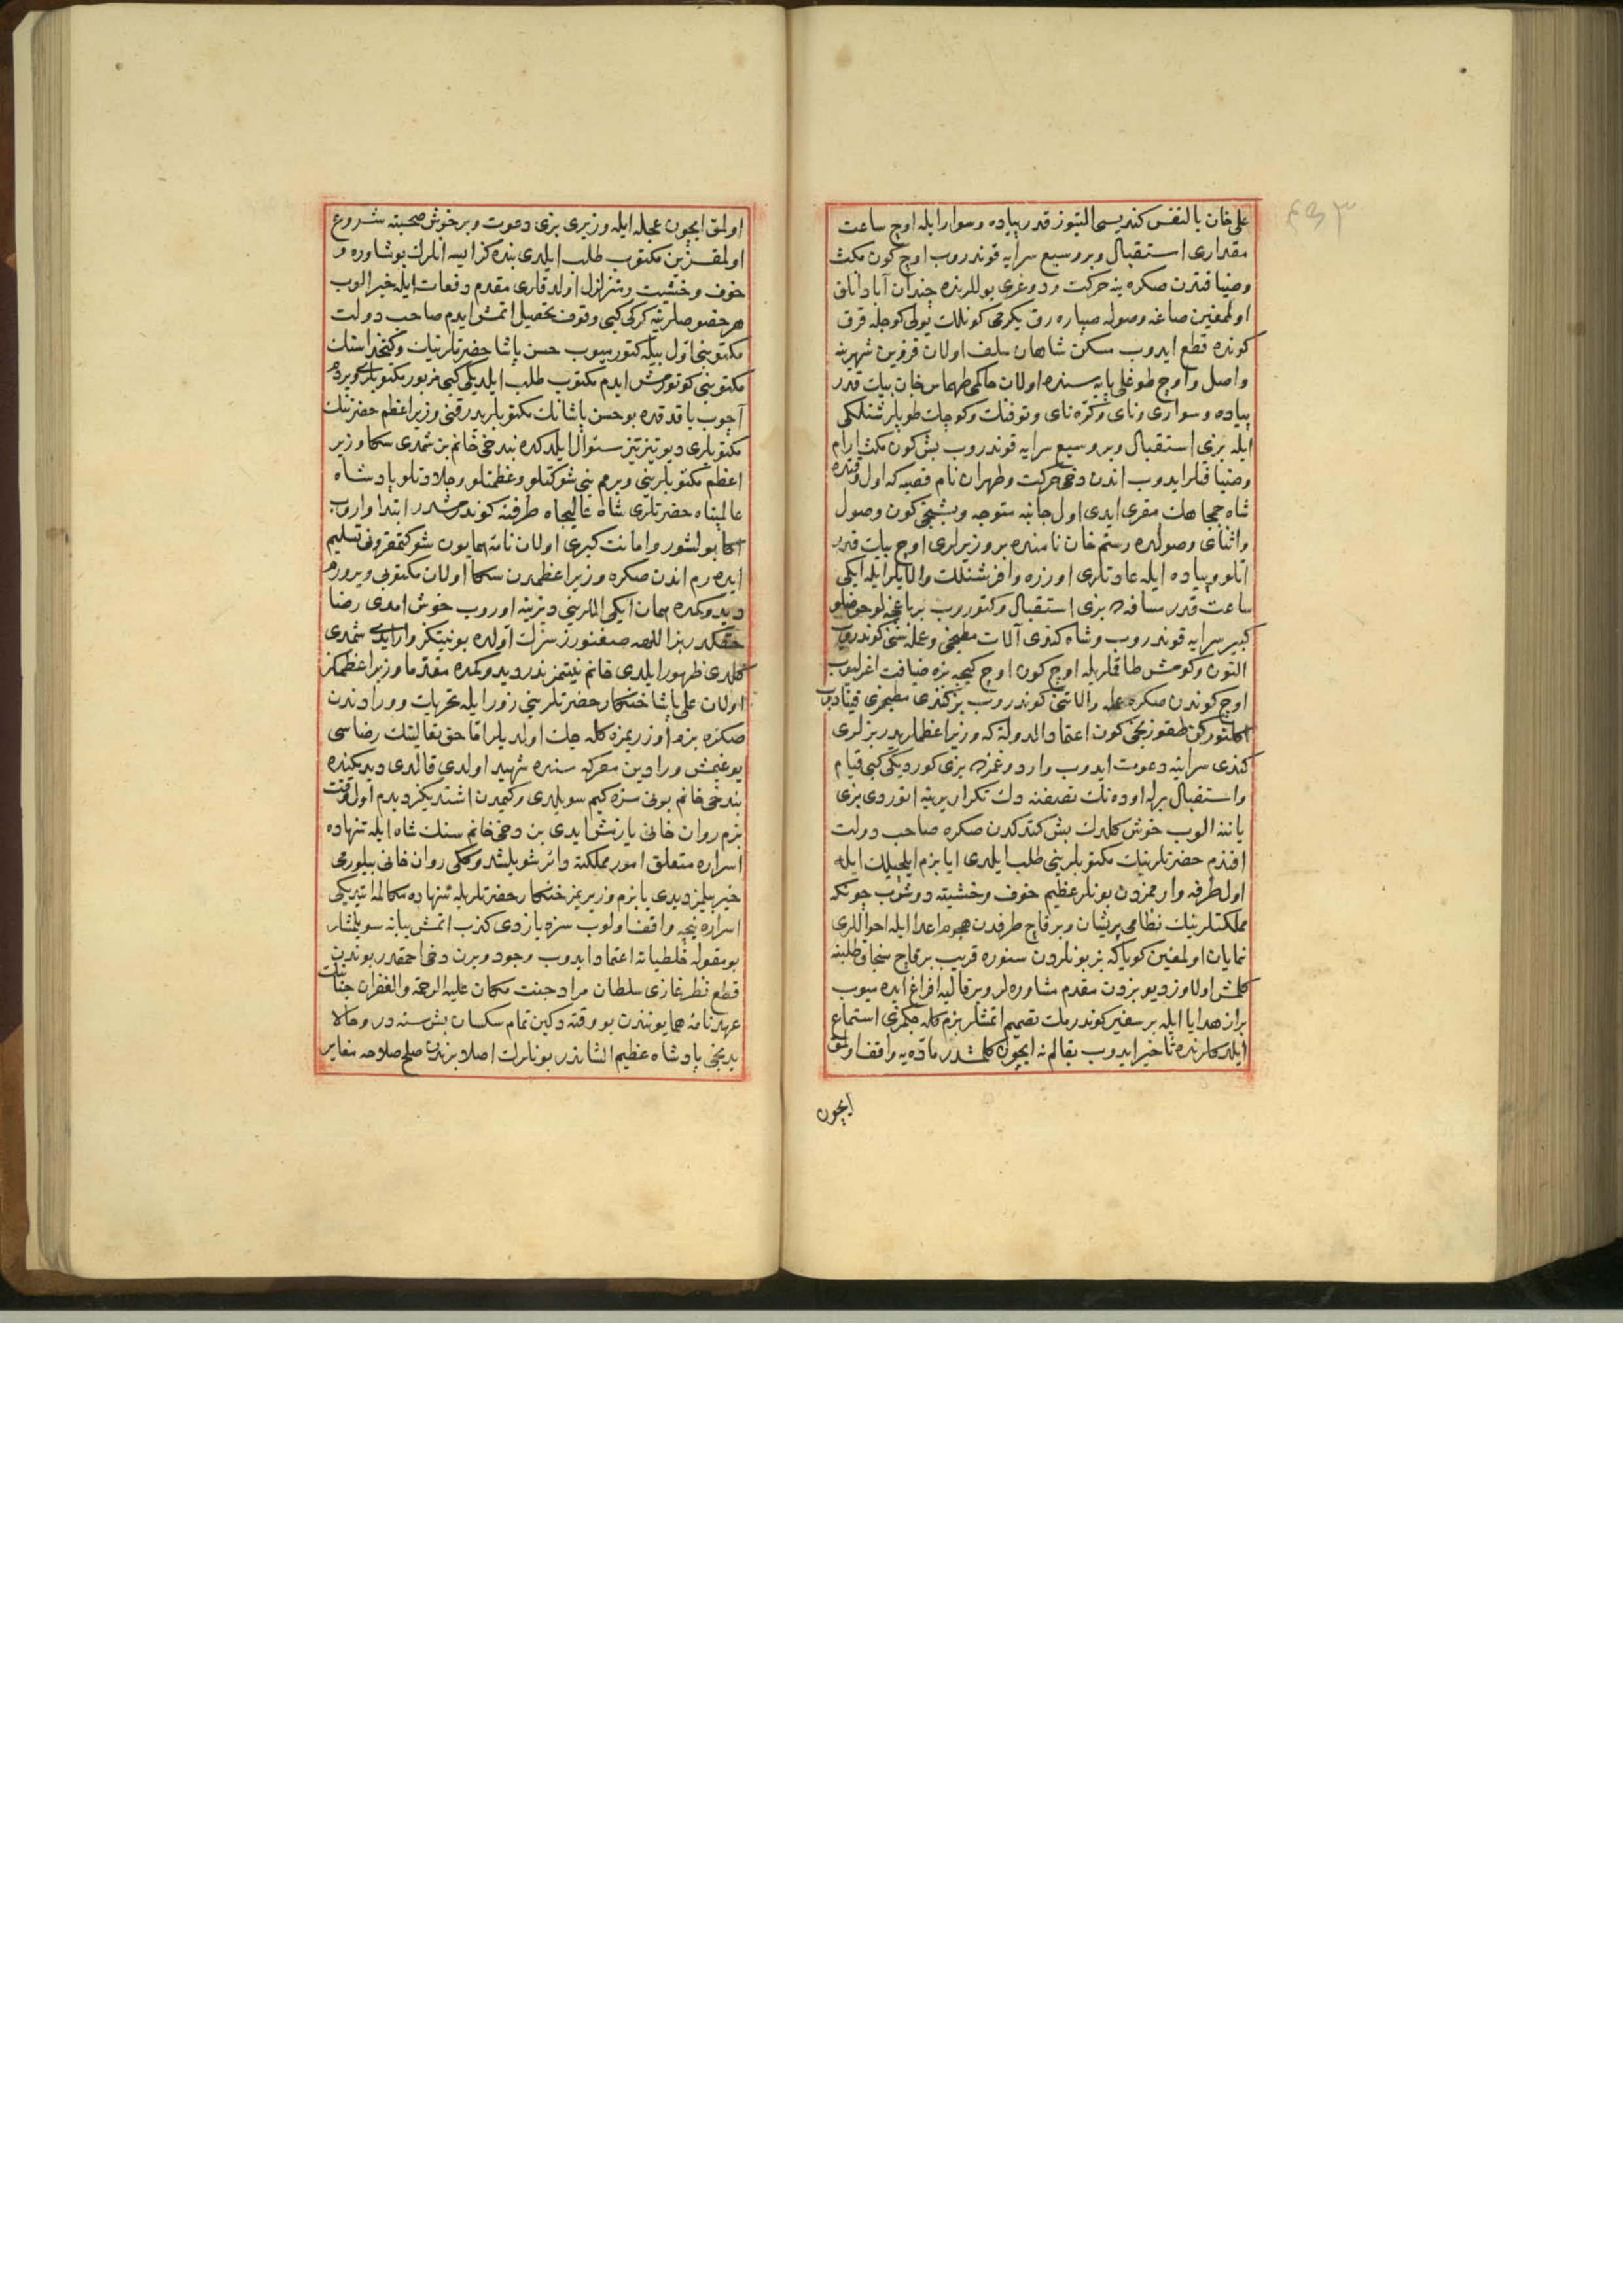 ٤٩٣
علی خان بالنفس کندیسی التیوز قدر پیاده و سوار ایله اوچ ساعت
مقداری استقبال و بر وسیع سرایه قوندروب اوچ کون مکث
وضیافتدن صکره ینه حرکت و دوغری یوللرنده چندان آبادانلق
اولمغین صاغه وصوله صپاره رق یکرمی کونلك یولی کوجله قرق
کونده قطع ایدوب مسکن شاهان سلف اولان قزوین شهرینه
واصل و اوچ طوغلی پایه سنده اولان حاکمی طهماس خان بیك قدر
پیاده و سواری و نای و کره نای و توفنك و کوچك طوپلر شنلکی
ایله بزی استقبال و بر وسیع سرایه قوندروب بش کون مکث و ارام
وضیافتلر ایدوب اندن دخی حرکت و طهران نام قصبه که اول وقتده
شاه جمجاهك مقری ایدی اول جانبه متوجه و بشنجی کون وصول
و اثنای وصولده رستم خان نامنده بر وزیرلری اوچ بیك قدر
اتلو و پیاده ایله عادتلری اوزره وافر شنلك والایلر ایله ایکی
ساعت قدر مسافه ده بزی استقبال و کتوروب بر باغچه لو حوضلو
کبیر سرایه قوندروب و شاه کندی آلات مطبخی و عمله سنی کوندروب
التون و کومش طاقملریله اوچ کون اوچ کیجه بزه ضیافت اغرلیوب
اوچ کوندن صکره عمله و الاتنی کوندروب بز کندی مطبخمزی قینادوب
اکلنورکن طقوزنجی کون اعتماد الدوله که وزیراعظملریدر بزلری
کندی سراینه دعوت ایدوب وارد و غمزده بزی کوردیکی کبی قیام
و استقبال برله اوده نك نصفنه دك تکرار یرینه اتوردی بزی
یاننه الوب خوش کلدك بش کتدکدن صکره صاحب دولت
افندم حضرتلرینك مکتوبلرینی طلب ایلدی ایا بزم ایلچیلك ایله
اول طرفه وارممزدن بونلر عظیم خوف و خشیته دوشوب چونکه
مملکتلرینك نظامی پریشان و بر قاچ طرفدن هجوم اعدا ایله احواللری
نمایان اولمغین کویا که بز بونلردن سنوره قریب بر قاچ سنجاق طلبنه
کلمش اولاوز دیو بزدن مقدم مشاوره لر و بر قالبه افراغ ایده میوب
براز هدایا ایله بر سفیر کوندرمك تصمیم اتمشلر بزم کله جکمزی استماع
ایلدکلرنده تأخیر ایدوب بقالم نه ایچون کلمشدر ماده یه واقف اولمق
ایچون
اولمق ایچون عجله ایله وزیری بزی دعوت و بر خوش صحبته شروع
اولمقزین مکتوب طلب ایلدی بنده کز ایسه انلرك بو مشاوره و
خوف و خشیت و تزلزل اولدقلری مقدم دفعات ایله خبر الوب
هر خصوصلرینه کرکی کبی وقوف تحصیل اتمش ایدم صاحب دولت
مکتوبنی اول بیله کتورمیوب حسن پاشا حضرتلرینك و کتخداسنك
مکتوبنی کوتورمش ایدم مکتوب طلب ایلدیکی کبی مزبور مکتوبلری ویردم
آچوب باقدقده بو حسن پاشانك مکتوبلریدر قنی وزیراعظم حضرتنك
مکتوبلری دیو تیز تیز سؤال ایلدکده بند‌خی خانم بن شمدی سکا وزیر
اعظم مکتوبلرینی ویرمم بنی شوکتلو و عظمتلو و جلادتلو پادشاه
عالمپناه حضرتلری شاه عالیجاه طرفنه کوندرمشدر ابتدا واروب
اکا بولشور و امانت کبری اولان نامه همایون شوکتمقرونی تسلیم
ایده رم اندن صکره وزیراعظمدن سکا اولان مکتوبی ویرورم
دیدوکمده همان ایکی اللرینی دیزینه اوروب خوش امدی رضا
حقکدر بزاللهه صغنورز سزك اولده بو نیتکز وار ایدی شمدی
کلدی ظهور ایلدی خانم نیتمز ندر دیدوکمده مقدما وزیراعظمکز
اولان علی پاشا خنکار حضرتلرینی زور ایله تحریك و ورادندن
صکره بزم اوزریمزه کله جك اولدیلر اقا حق تعالینك رضاسی
یوغیمش ورادین معرکه سنده شهید اولدی قالدی دیدیکنده
بندخی خانم بونی سزه کیم سویلدی و کیمدن اشتدیکز دیدم اول وقت
بزم روان خانی یازمش ایدی بن دخی خانم سنك شاه ایله تنهاده
اسراره متعلق امور مملکته دائر شویلشدوککی روان خانی بیلورمی
خیر بیلمز دیدی یا بزم وزیریمز خنکار حضرتلریله تنهاده مکالمه ایتدیکی
اسراره نیجه واقف اولوب سزه یازدی کذب اتمش یبانه سویلمشلر
بو مقوله غلطیاته اعتماد ایدوب وجود ویرن دخی احمقدر بوندن
قطع نظر غازی سلطان مراد جنت مکان علیه الرحمة والغفران جنابنك
عهدنامه همایونندن بو وقته دکین تمام سکسان بش سنه در و حالا
یدنجی پادشاه عظیم الشاندر بونلرك اصلا بزندن صلح صلاحه مغایر